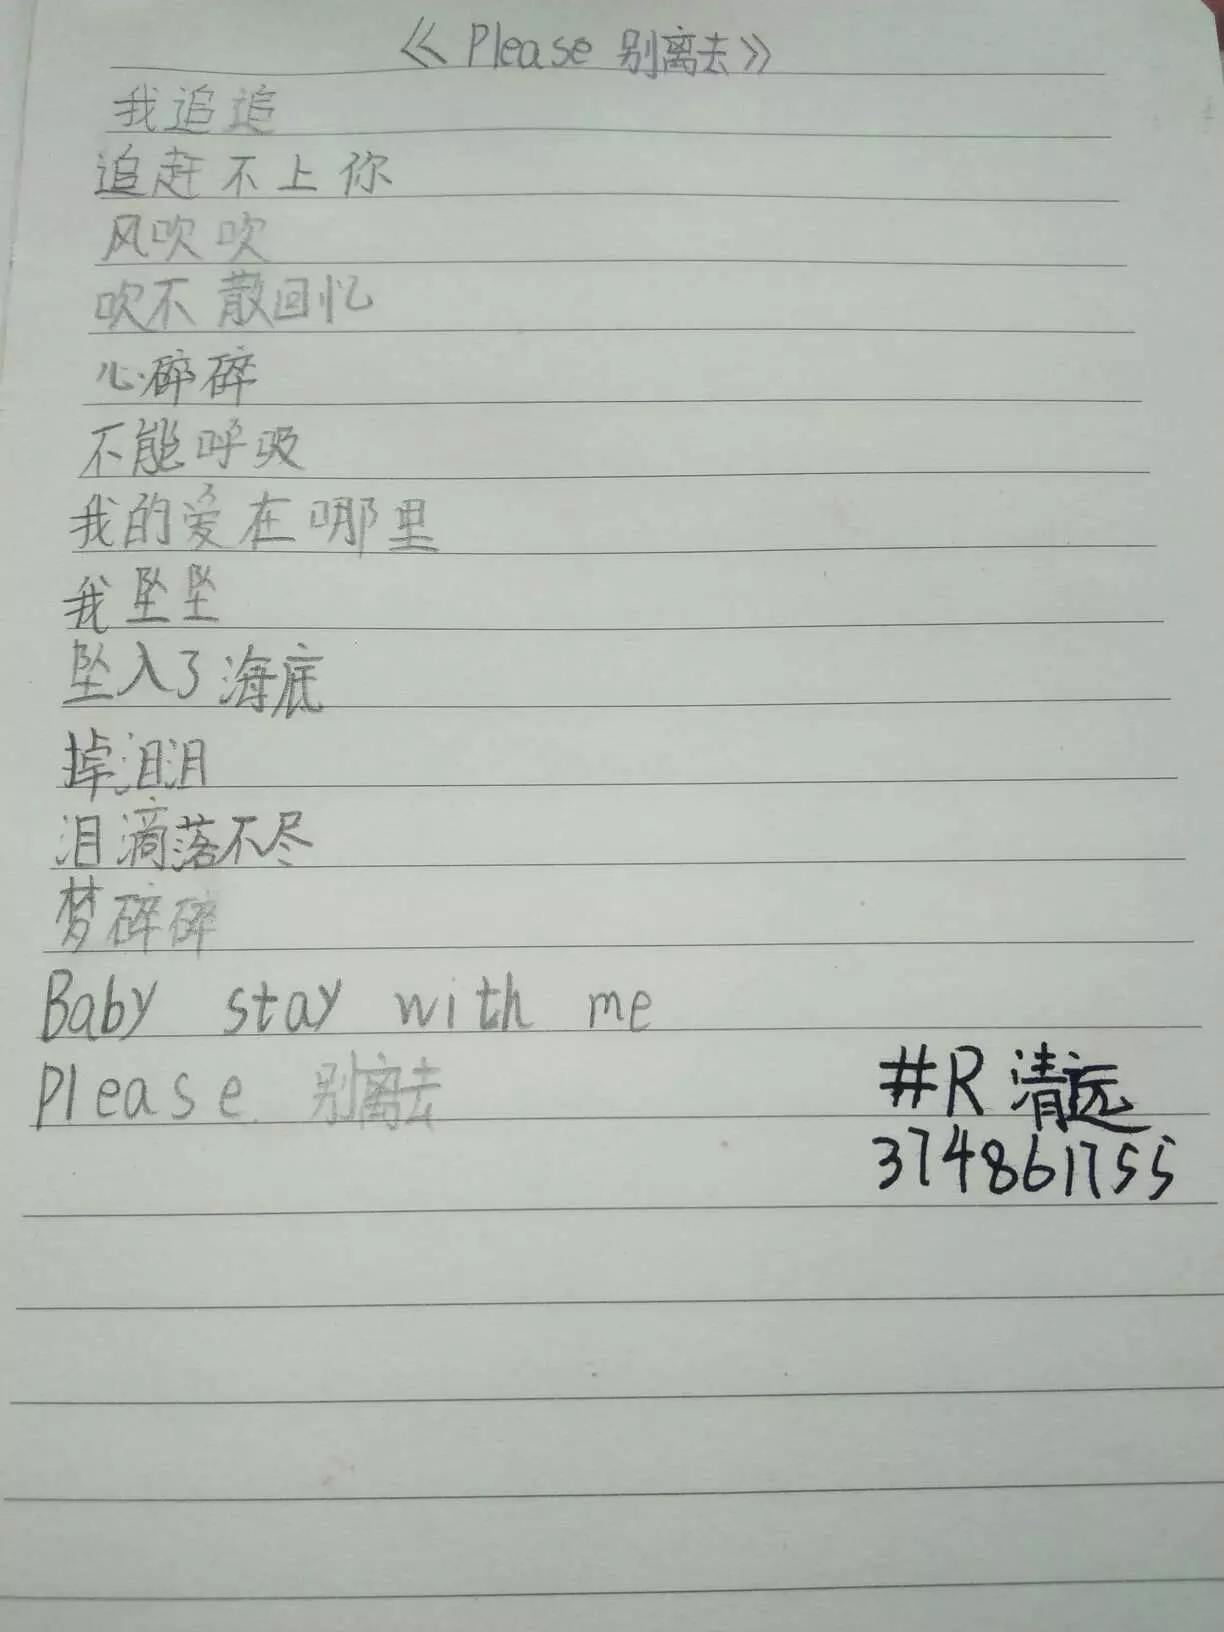 《Please 别离去》
我追追
追赶不上你
风吹吹
吹不散回忆
心碎碎
不能呼吸
我的爱在哪里
我坠坠
坠入了海底
掉泪泪
泪滴落不尽
梦碎碎
Baby stay with me
Please 别离去
#R 清远
374861755